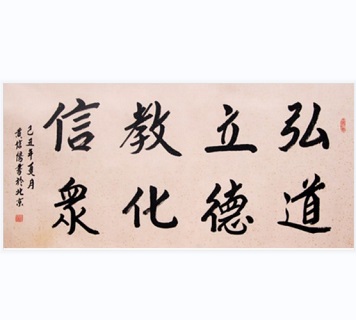 弘道
立德
教化
信眾
己丑年夏月
黄信阳書於北京